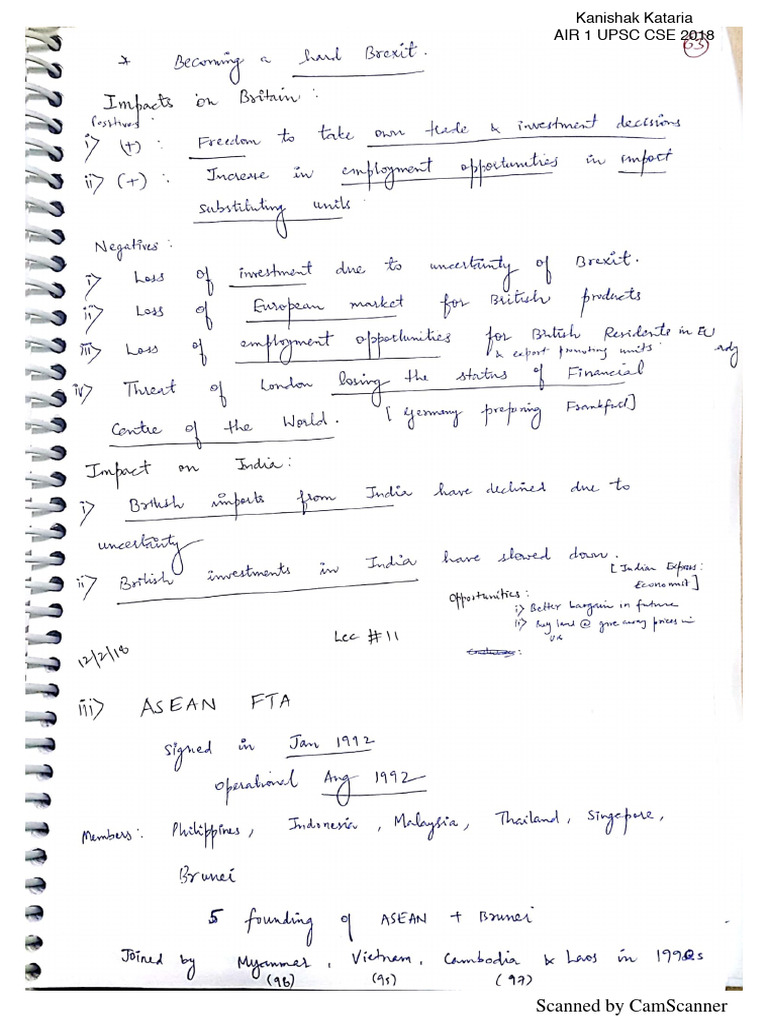 Kanishak Kataria
AIR 1 UPSC CSE 2018
53
* Becoming a hard Brexit.
Impacts on Britain :
Positives :
i> (+) : Freedom to take own trade & investment decisions
ii> (+) : Increase in employment opportunities in impact
substituting units.
Negatives :
i> Loss of investment due to uncertainty of Brexit.
ii> Loss of European market for British products
iii> Loss of employment opportunities for British Residents in EU
& export promoting units.
iv> Threat of London losing the status of Financial
Centre of the World. [Germany preparing Frankfurt]
Impact on India :
i> British imports from India have declined due to
uncertainty
ii> British investments in India have slowed down.
[Indian Express:
Economist]
Opportunities :
i> Better bargain in future
ii> Buy land @ give away prices in
UK
12/2/18
Lec # 11
iii> ASEAN FTA
Signed in Jan 1992
Operational Aug 1992
Members : Philippines, Indonesia, Malaysia, Thailand, Singapore,
Brunei
5 founding of ASEAN + Brunei
Joined by Myanmar, Vietnam, Cambodia & Laos in 1990s
(96) (95) (97)
Scanned by CamScanner